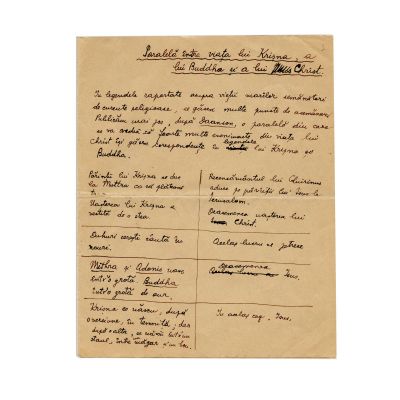 Paralelă între viața lui Krișna, a
lui Buddha și a lui Christ.
In legendele raportate asupra vieții marilor
de curente religioase, se găsesc multe puncte de asemănare.
Publicăm mai jos, după o paralelă din care
se va vedea că foarte multe din viața lui
Christ își găsesc corespondente în legendele lui Krișna și
Buddha.
Părinții lui Krișna se duc
la Mathra ca să plătească
Recensământul lui Quirinus
aduce pe părinții lui Isus la
Ierusalem.
Nașterea lui Krișna e
vestită de o stea.
Deasemenea nașterea lui
Christ.
Duhuri cerești cântă în
nouri.
Acelaș lucru se petrece
Mithra și Adonis nasc
într'o grotă. Buddha
într'o grotă de aur.
Deasemenea
Isus.
Krișna se născu, după
o versiune, în temniță; dar
după alta, se născu într'un
staul, între măgar și un bou.
Tot acelaș caz, Isus.